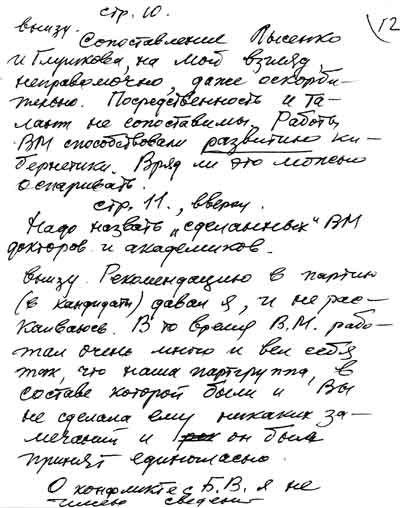 стр. 10.
12
внизу.
Сопоставление Лысенко
и Глушкова, на мой взгляд,
неправомочно, даже оскорби-
тельно. Посредственность и та-
лант не сопоставимы. Работы
ВМ способствовали развитию ки-
бернетики. Вряд ли это можно
оспаривать.
стр. 11., вверху.
Надо назвать „сделанных" ВМ
докторов и академиков.
внизу. Рекомендацию в партию
(в кандидаты) давал я, и не рас-
каиваюсь. В то время В.М. рабо-
тал очень много и вел себя
так, что наша партгруппа, в
составе которой были и Вы
не сделала ему никаких за-
мечаний и он был
принят единогласно.
О конфликте с Б.В. я не
имею сведений